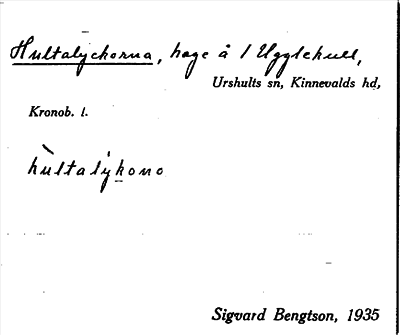 Hultalyckorna, hage å 1 Ugglekull,
Urshults sn, Kinnevalds hd,
Kronob. l.
hùltalýkono
Sigvard Bengtson, 1935